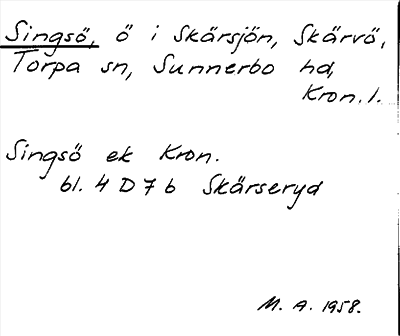 Singsö, ö i Skärsjön, Skärvö,
Torpa sn, Sunnerbo hd,
Kron. l.
Singsö ek Kron.
bl. 4 D 7 b Skärseryd
M. A. 1958.